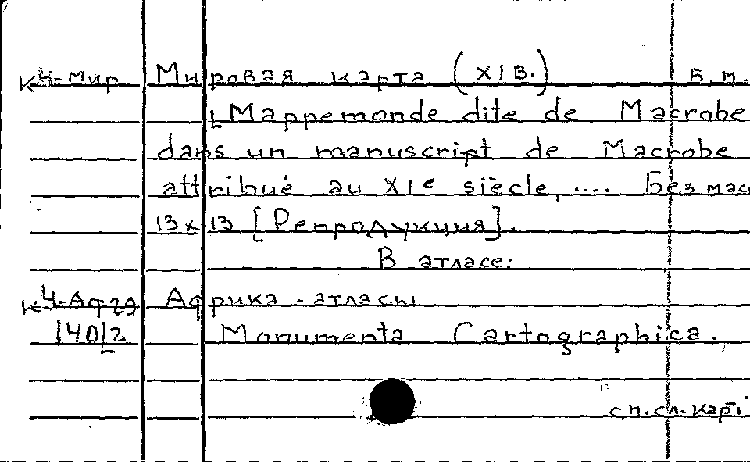 К4-Мир Мировая карта (XI в.) Б.м.
[Mappemonde dite de Macrobe
dans un manuscript de Macrobe
attribué au XIe siècle, .... Без мас
13x13 [Репродукция].
В атласе:
К4-Афга Африка - атласы
1401/2 Monumenta Cartographica.
сп.сл.карт